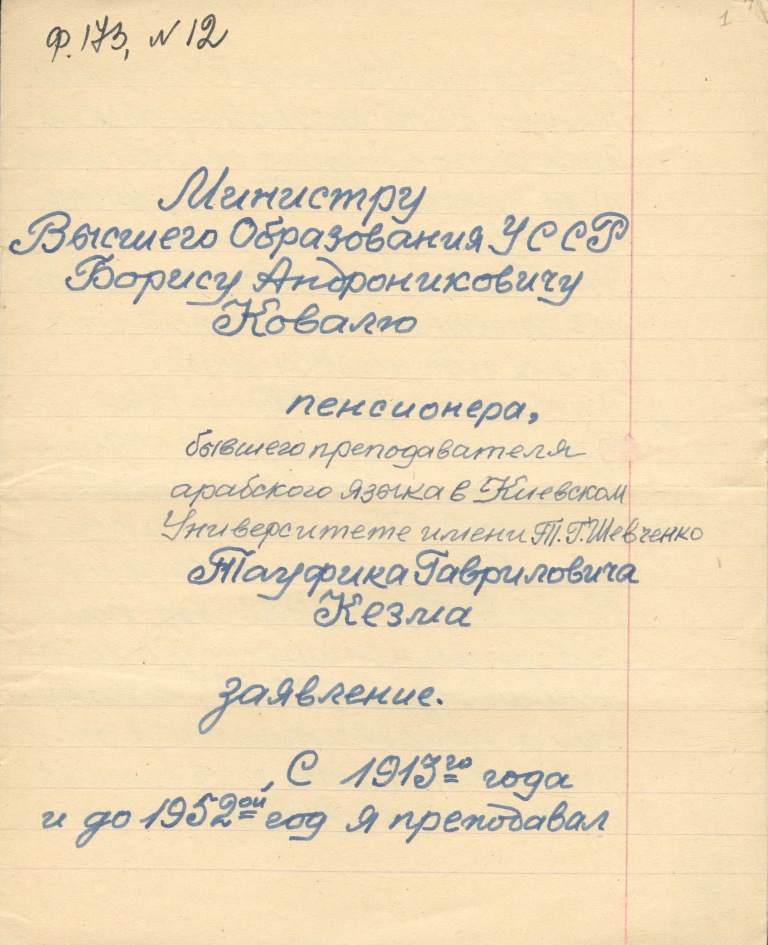 Ф. 173, N 12
1
Министру
Высшего Образования УССР
Борису Андрониковичу
Ковалю
пенсионера,
бывшего преподавателя
арабского языка в Киевском
Университете имени Т.Г. Шевченко
Тауфика Гавриловича
Кезма
заявление.
С 1913го года
и до 1952ой год я преподавал